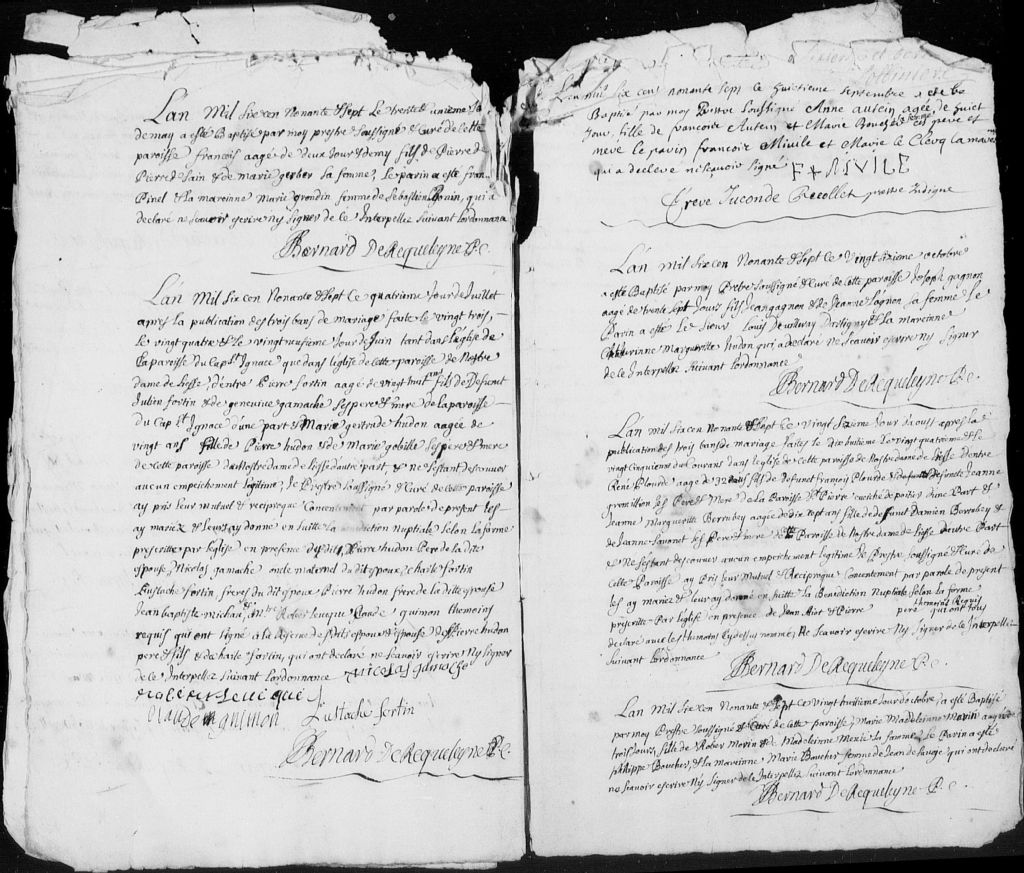 Lan Mil Six cen Nonante & sept Le trente & unieme Jo
de may a esté Baptisé par moy prestre soussigné & Curé de Cette
paroisse francois aagé de deux Jour & demy fils de Pierre de
Pierre de sain & de marie gerber sa femme, Le parin a esté fran
Pinel & la mareinne marie grondin femme de sebastien bonin, qui a
declaré ne scavoir escrire ny signer de ce Interpellez suivant lordonnance
Bernard DeRequeleyne P. C.
Lan Mil Six cen Nonante & sept Ce quatrieme Jour de Juillet
apres la publication des trois bans de mariage faite le vingt trois,
Le vingt quatre & le vingt neufieme Jour de Juin tant dans leglise de
La paroisse du Cap St Ignace que dans leglise de cette paroisse de Nostre
dame de Liesse, dentre Pierre fortin aagé de vingt huit ans fils de Defunt
Julien fortin & de genevive gamache ses pere & mere de la paroisse
du Cap St Ignace dune part & Marie gertrude hudon aagée de
vingt ans fille de Pierre hudon & de Marie gobille ses pere & mere
de cette paroisse de Nostre dame de Liesse dautre part, & ne sestant descouver
aucun empeichement legitime, Je Prestre soussigné & Curé de Cette paroisse
ay pris leur mutuel & reciproque Concentement par parole de present les
ay mariez & leurs ay donne en suitte la benediction Nuptiale selon la forme
prescritte par leglise en presence desdits, Pierre hudon Pere de la dite
espouse, Nicolas gamache oncle maternel du dit espoux, charle fortin
Eustache fortin, freres du dit espoux Pierre hudon frere de la ditte espouse
Jean baptiste michau, Rober leveque Claude quimon themoins
requis qui ont signé a la reserve desdits espoux & espouse & Pierre hudon
pere & fils & de charle fortin, qui ont declaré ne scavoir escrire Ny signer
de ce Interpellez suivant Lordonnance nicolas gamache
rober leveique
claude quimon Eustache fortin
Bernard DeRequeleyne P. C.
Lan mil six cent nonante sept le huictieme septembre a esté
Baptisé par moy Pretre soussigné Anne autein agée de huict
Jour, fille de francois Autein et Marie Boucher sa femme ses pere et
mere le parin francois Mivile et Marie le Clercq la maraine
qui a declere ne scavoir signé F + MIVILE
frere Juconde Recollet prestre Indigne
Lan Mil Six cen Nonante & Sept Ce vingt sixieme octobre
a esté Baptisé par moy Pretre soussigné & Curé de Cette paroisse Joseph gagnon
aagé de trente sept Jours fils Jean gagnon & de Jeanne Loignon sa femme Le
Parin a esté Le sieur Louis devilleray Dartigny & la mareinne
Catherinne Margueritte hudon qui a declaré ne scavoir escrire ny signer
de ce Interpellez suivant lordonnance
Bernard DeRequeleyne P. C.
Lan Mil Six cen Nonante & Sept Ce vingt sixieme Jour daoust apres la
publication des trois bans de mariage faites le dixhuitieme le vingt quatrieme & le
vingt cinquieme du Courans dans leglise de cette paroisse de Nostre dame de Liesse dentre
René Plourde aagé de 32 ans fils de defunct francois Plourde & de defuncte Jeanne
gremillon ses Pere & Mere De La Paroisse St Pierre eveiché de poitier dune Part &
Jeanne Margueritte Berrubey aagée de dix sept ans fille de defunct Damien Berrubey &
de Jeanne Savonet ses Pere & mere de Paroisse de Nostre dame de Liesse dautre Part
& Ne sestant descouver aucun empeichement legitime Je Prestre soussigné & Curé de
Cette Paroisse ay Pris leur Mutuel & Reciproque Concentement par parole de present
les ay mariez & leur ay donné en suitte la Benediction Nuptiale selon la forme
prescritte Par leglise en presence de Jean Miot & Pierre pere themoins Requis qui ont tous
declaré avec les themoins Cydessus nommé, Ne scavoir escrire Ny signer de ce Interpellez
suivant lordonnance
Bernard DeRequeleyne P. C.
Lan Mil Six cen Nonante & sept Ce vingt huitieme Jour doctobre, a esté Baptisé
par moy Prestre soussigné & Curé de Cette paroisse, Marie Madeleinne Morin aagée de
trois Jours, fille de Rober Morin & de Madeleinne Menie sa femme, Le Parin a esté
philippe Boucher, & la mareinne Marie Boucher femme de Jean de Lauge qui ont declaré
ne scavoir escrire Ny signer de ce Interpellez suivant lordonnance
Bernard DeRequeleyne P. C.